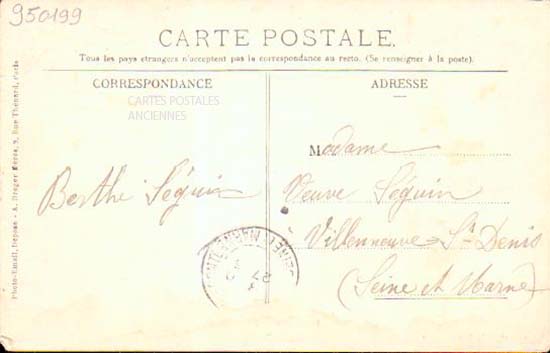 950199
CARTE POSTALE.
Tous les pays étrangers n'acceptent pas la correspondance au recto. (Se renseigner à la poste).
CORRESPONDANCE
CARTES POSTALES
ANCIENNES
Berthe Séguin
ADRESSE
Madame
Veuve Séguin
Villenneuve St Denis
(Seine et Marne)
27
Photo-Email, Dépose - A. Breger Frères, 9, Rue Thénard, Paris